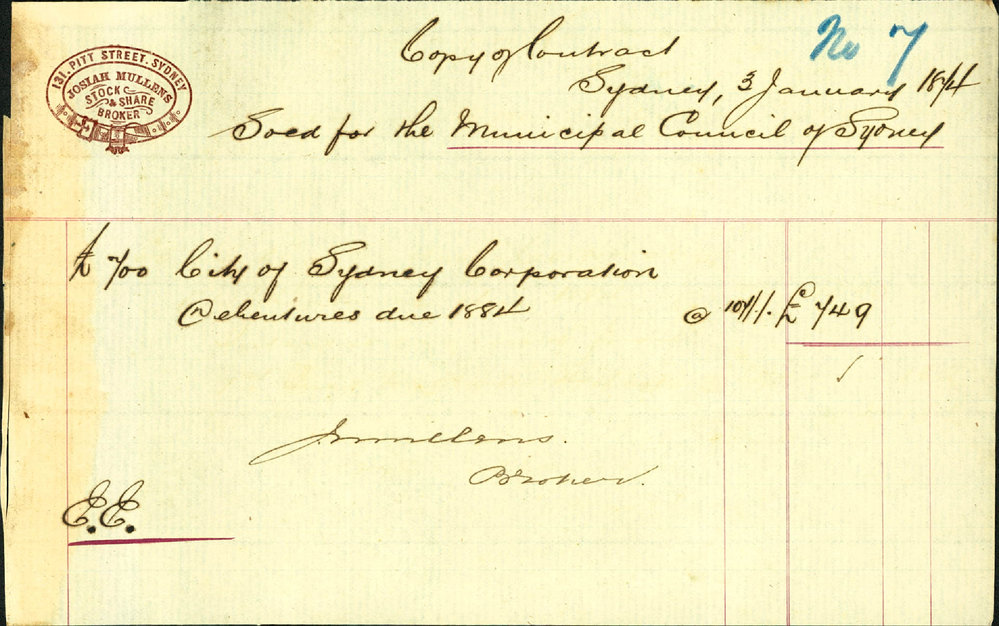 131. PITT STREET. SYDNEY
JOSIAH MULLENS
STOCK
& SHARE
BROKER
No 7
Copy of Contract
Sydney, 3 January 1874
Sold for the Municipal Council of Sydney
£ 700 City of Sydney Corporation
Debentures due 1884 @ 107/. £ 749
J Mullens.
Broker.
E.E.